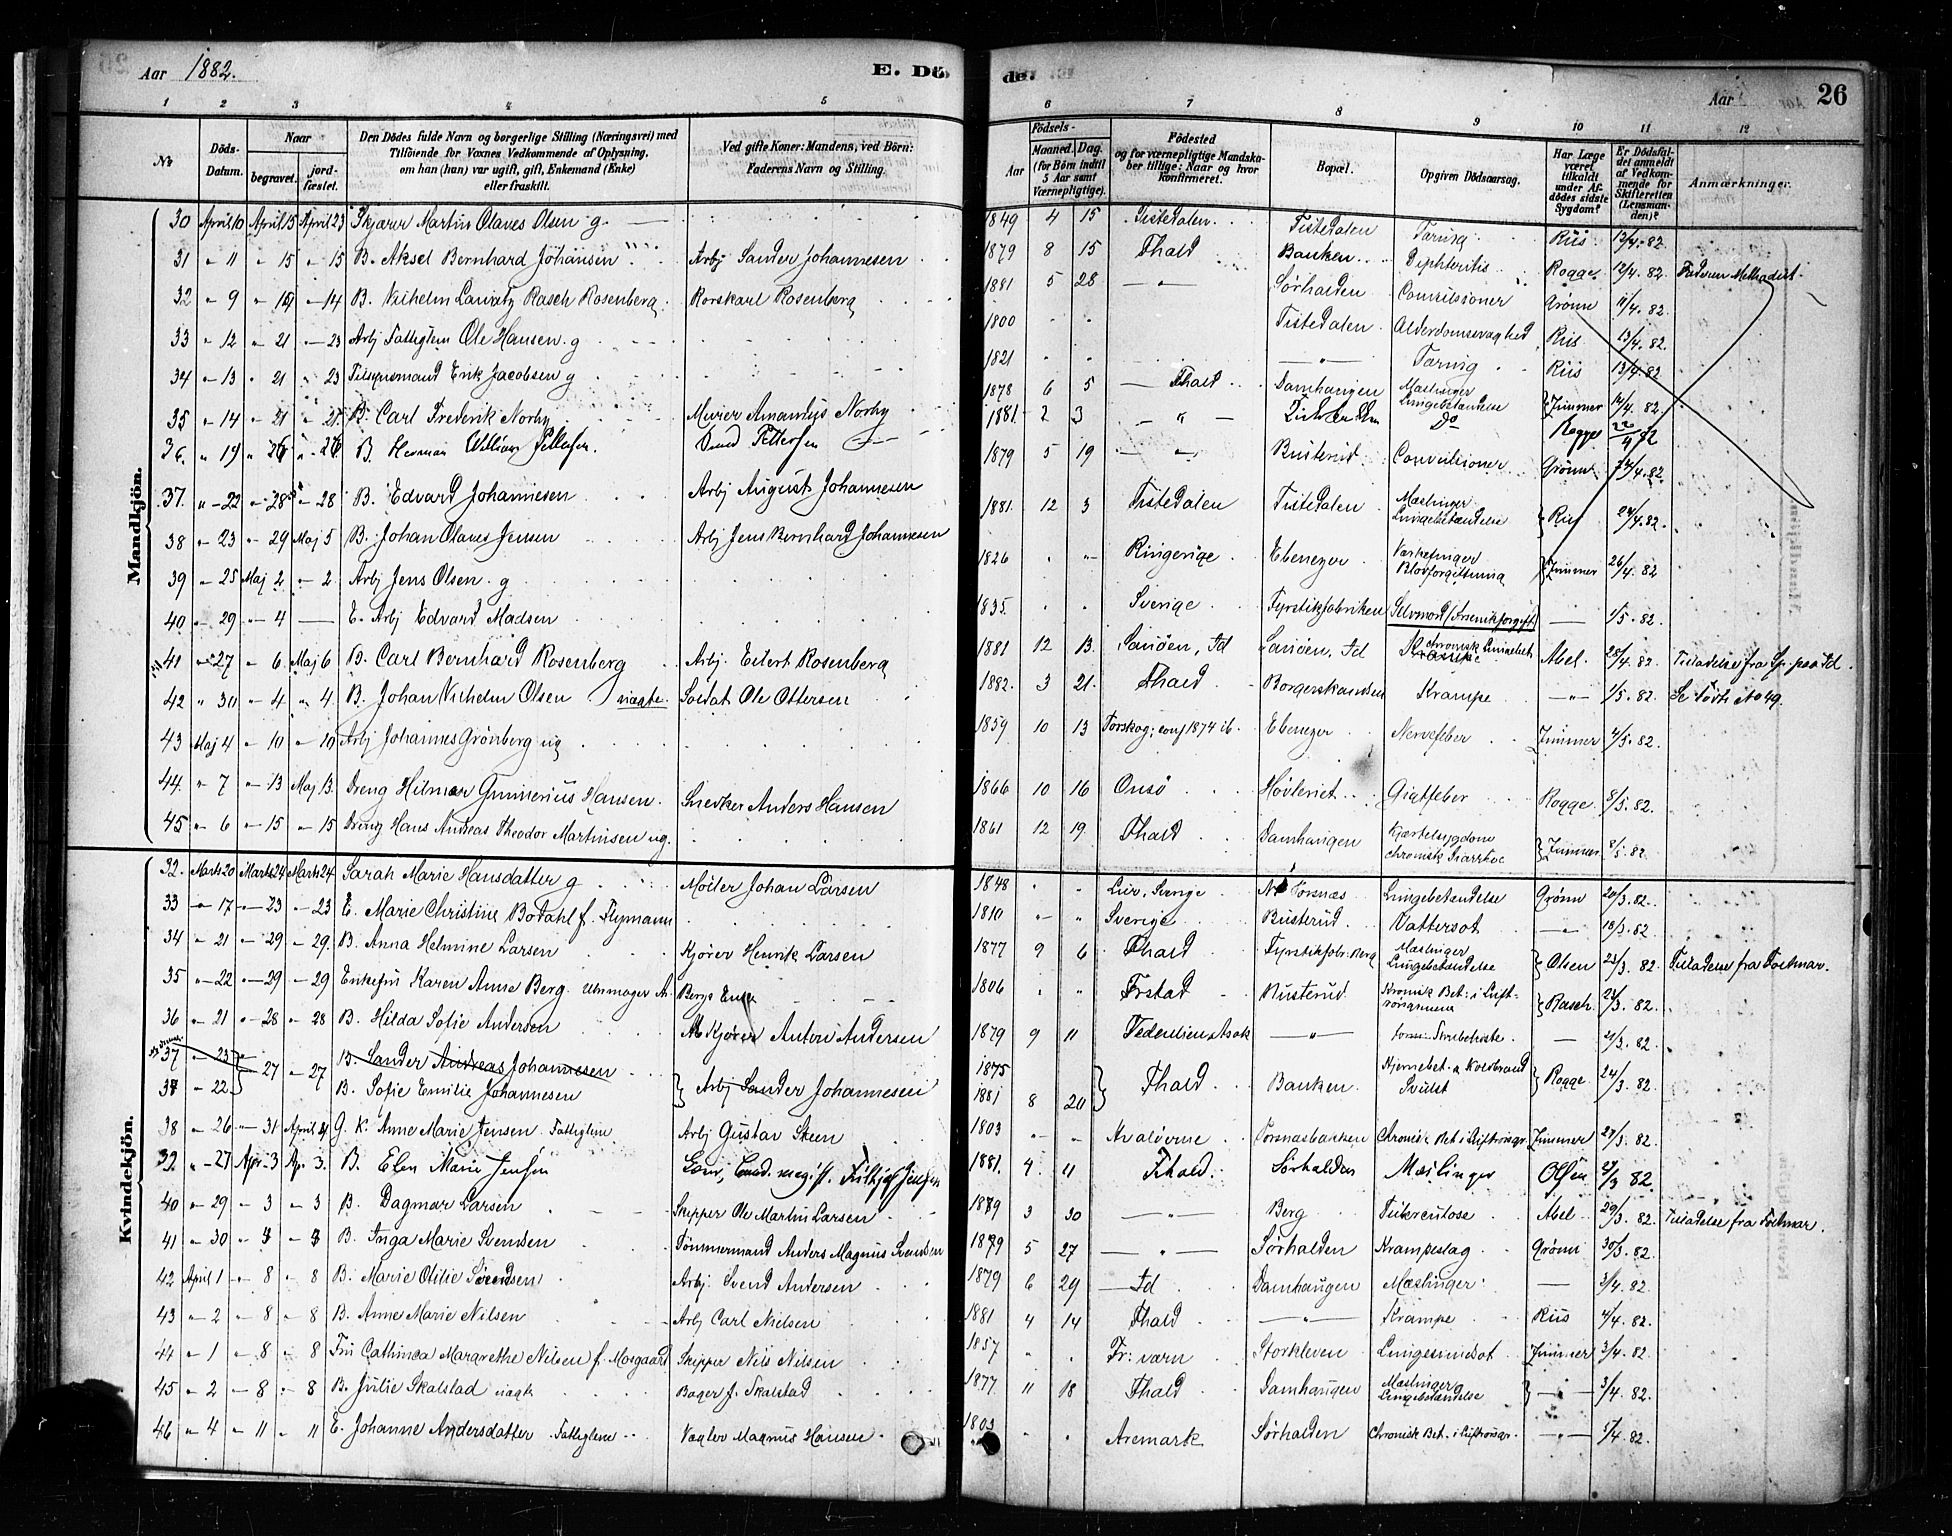 Aar 1882. E. Dö- de. Aar 26
1 2 3 4 5 6 7 8 9 10 11 12
No Döds-Datum. Naar begravet. jord-fæstet. Den Dödes fulde Navn og borgerlige Stilling (Næringsvei) med Tilföiende for Voxnes Vedkommende af Oplysning, om han (hun) var ugift, gift, Enkemand (Enke) eller fraskilt. Ved gifte Koner: Mandens, ved Börn: Faderens Navn og Stilling. Födsels- Aar Maaned. Dag. (for Börn indtil 5 Aar samt Værnepligtige). Födested og for værnepligtige Mandska-ber tillige: Naar og hvor konfirmeret. Bopæl. Opgiven Dödsaarsag. Har Læge været tilkaldt under Af-dödes sidste Sygdom? Er Dödsfal-det anmeldt af Vedkom-mende for Skifteretten (Lensman-den)? Anmærkninger.
Mandkjön.
30 April 10 April 15 April 23 Skjærer Martin Olaves Olsen g. 1849 4 15 Tistedalen Tistedalen Tæring Riis 12/4. 82.
31 " 11 " 15 " 15 B. Aksel Bernhard Johansen Arbj Sander Johannesen 1879 8 15 Fhald Banken Diphteritis Rogge 12/4. 82. Faderen Methodist.
32 " 9 " 14 " 14 B. Vilhelm Lauratz Rasch Rosenberg Rorskarl Rosenberg 1881 5 28 " Sørhalden Convulsioner Grönn 11/4. 82.
33 " 12 " 21 " 23 Arbj Fattiglem Ole Hansen g 1800 Tistedalen Alderdomssvaghed Riis 13/4. 82.
34 " 13 " 21 " 23 Tilsynsmand Erik Jacobsen g 1821 " Tæring Riis 13/4. 82
35 " 14 " 21 " 21 B. Carl Frederik Norby Murer Amandus Norby 1878 6 5 Fhald Damhaugen Mæslinger Lungebetændelse Zimmer 14/4. 82.
36. " 19 " 26 " 26 B. Herman William Pettersen Pettersen 1881 2 3 " Do Rogge 22/4 82
37. " 22 " 28 " 28 B. Edvard Johannesen Arbj August Johannesen 1879 5 19 " Busterud Convulsioner Grönn 24/4. 82.
38 " 23 " 29 Maj 5 B. Johan Olaves Jensen Arbj Jens Bernhard Johannesen 1881. 12 3 Tistedalen Tistedalen Mæslinger Lungebetændelse Riis 24/4. 82.
39 " 25 Maj 2 " 2 Arbj Jens Olsen g 1826 Ringerige Ebenezer Værkefinger Blodforgiftning Zimmer 26/4. 82
40 " 29 " 4 — E. Arbj Edvard Madsen 1835. Sverige Fyrstikfabriken Selvmord/Arsenikforgift — 1/5. 82.
41 " 27 " 6 Maj 6 B. Carl Bernhard Rosenberg Arbj. Eilert Rosenberg 1881 12 13. Sauöen, Id Sauöen, Id chronisk Lungebet. Abel 28/4. 82. Tilladelse fra Sp. paa Id.
42 " 30 " 4 " 4 B. Johan Vilhelm Olsen uægte. Soldat Ole Ottersen 1882. 3 21. Fhald Borgerskandsen Krampe " 1/5. 82. Se Födte No 49.
43 Maj 4 " 10 " 10 Arbj Johannes Grönberg ug 1859 10 13 Torskog; conf 1874 ib. Ebenezer Nervefeber Zimmer 4/5. 82.
44. " 7 " 13 Maj 13. Dreng Hilmar Gunnerius Hansen. Snedker Anders Hansen 1866 10 16 Onsö Hövleriet Gigtfeber Rogge 8/5. 82.
45 " 6 " 15 " 15 Dreng Hans Andreas Theodor Martinsen ug. 1861 12 19. Fhald Damhaugen Kjertelsygdom chronisk Diarrhoe Zimmer 8/5. 82.
Kvindekjön.
32. Marts 20 Marts 24 Marts 24 Sarah Marie Hansdatter g Möller Johan Larsen 1848 Sverige Torsnæs Lungebetændelse Grönn 20/3. 82.
33 " 17 " 23 " 23 E. Marie Christine Bodahl f. Flymann 1810 Sverige Busterud Vattersot " 18/3. 82.
34 " 21 " 29 " 29. B. Anna Helmine Larsen Kjörer Henrik Larsen 1877 9 6 Fhald Fyrstikfabr. Berg Mæslinger Lungebetændelse Olsen 23/3. 82 Tilladelse fra Folkmar.
35 " 22 " 29 " 29 Enkefru Karen Anne Berg Uhrmager A. Bergs Enke 1806 Frstad Busterud Kronisk Bet. i Luft-rörsgrenene Rasch 23/3. 82.
36 " 21 " 28 " 28 B. Hilda Sofie Andersen Kjörer Anton Andersen 1879 9 11 Asak " Strubehoste — 21/3. 82.
37 " 23 " 27 " 27 B. Sander Andreas Johannesen
37 " 22 B. Sofie Emilie Johannesen Arbj Sander Johannesen 1875 1881 8 20 Fhald Banken Hjernebet. & Koldbrand Svulst Rogge 24/3. 82.
38 " 26 " 31 April 21 G. K. Anne Marie Jensen Fattiglem Arbj Gustav Steen 1803 Hvalöerne Torsnæsbakken Chronisk Bet i Luftrörsgr. Zimmer 27/3. 82.
39. " 27 Apr. 3 Ap. 3. B. Elen Marie Jensen Fritjof Jensen 1881. 4 11 Fhald Sørhalden Mæslinger Olsen 27/3 82.
40 " 29 " 3 " 3 B. Dagmar Larsen Skipper Ole Martin Larsen 1879 3 30 " Berg Tuberculose Abel 29/3. 82 Tilladelse fra Folkmar.
41 " 30 " 3 " 3 B. Inga Marie Svendsen Tömmermand Anders Magnus Svendsen 1879 5 27 " Sørhalden Krampeslag Grönn 30/3. 82.
42 April 1 " 8 " 8 B. Marie Otilie Svendsen Arbj. Svend Andersen 1879 6 29 Id Damhaugen Mæslinger — 3/4. 82.
43 " 2 " 8 " 8 B. Anne Marie Nilsen Arbj Carl Nielsen 1881 4 14 Fhald " Krampe Riis 4/4. 82.
44 " 1 " 8 " 8 Fru Cathinca Margrethe Nilsen f. Mosgaard Skipper Nils Nilsen 1857 Fr: værn Storkleven Lungesvindsot Zimmer 3/4. 82.
45 " 2 " 8 " 8 B. Julie Skalstad uægte Bager J. Skalstad 1877. 11 18 Fhald Damhaugen Mæslinger Lungebetændelse " 3/4. 82.
46 " 4 " 11 " 11 E. Johanne Andersdatter Fattiglem Vægter Magnus Hansen 1803 Aremark Sørhalden Chronisk Bet. i Luftrörsgr. " 5/4. 82.